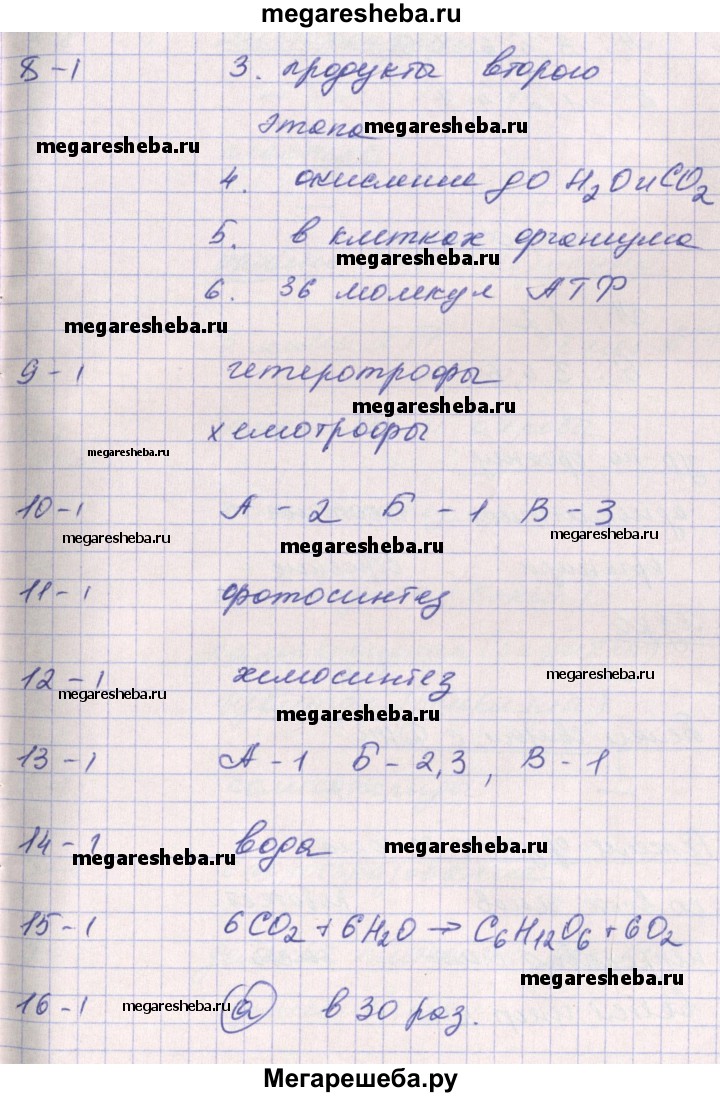 megaresheba.ru
8-1 3. продукты второго
этапа megaresheba.ru
megaresheba.ru
4. окисление до H₂O и CO₂
5. в клетках организма
megaresheba.ru
6. 36 молекул АТФ
megaresheba.ru
9-1 гетеротрофы
megaresheba.ru
хемотрофы
megaresheba.ru
10-1 А - 2 Б - 1 В - 3
megaresheba.ru megaresheba.ru
megaresheba.ru
11-1 фотосинтез
12-1 хемосинтез megaresheba.ru
megaresheba.ru
megaresheba.ru
13-1 А - 1 Б - 2,3, В - 1
14-1 вода megaresheba.ru
megaresheba.ru
15-1 6CO₂ + 6H₂O → C₆H₁₂O₆ + 6O₂
megaresheba.ru
16-1 megaresheba.ru а в 30 раз.
megaresheba.ru
Мегарешеба.ру